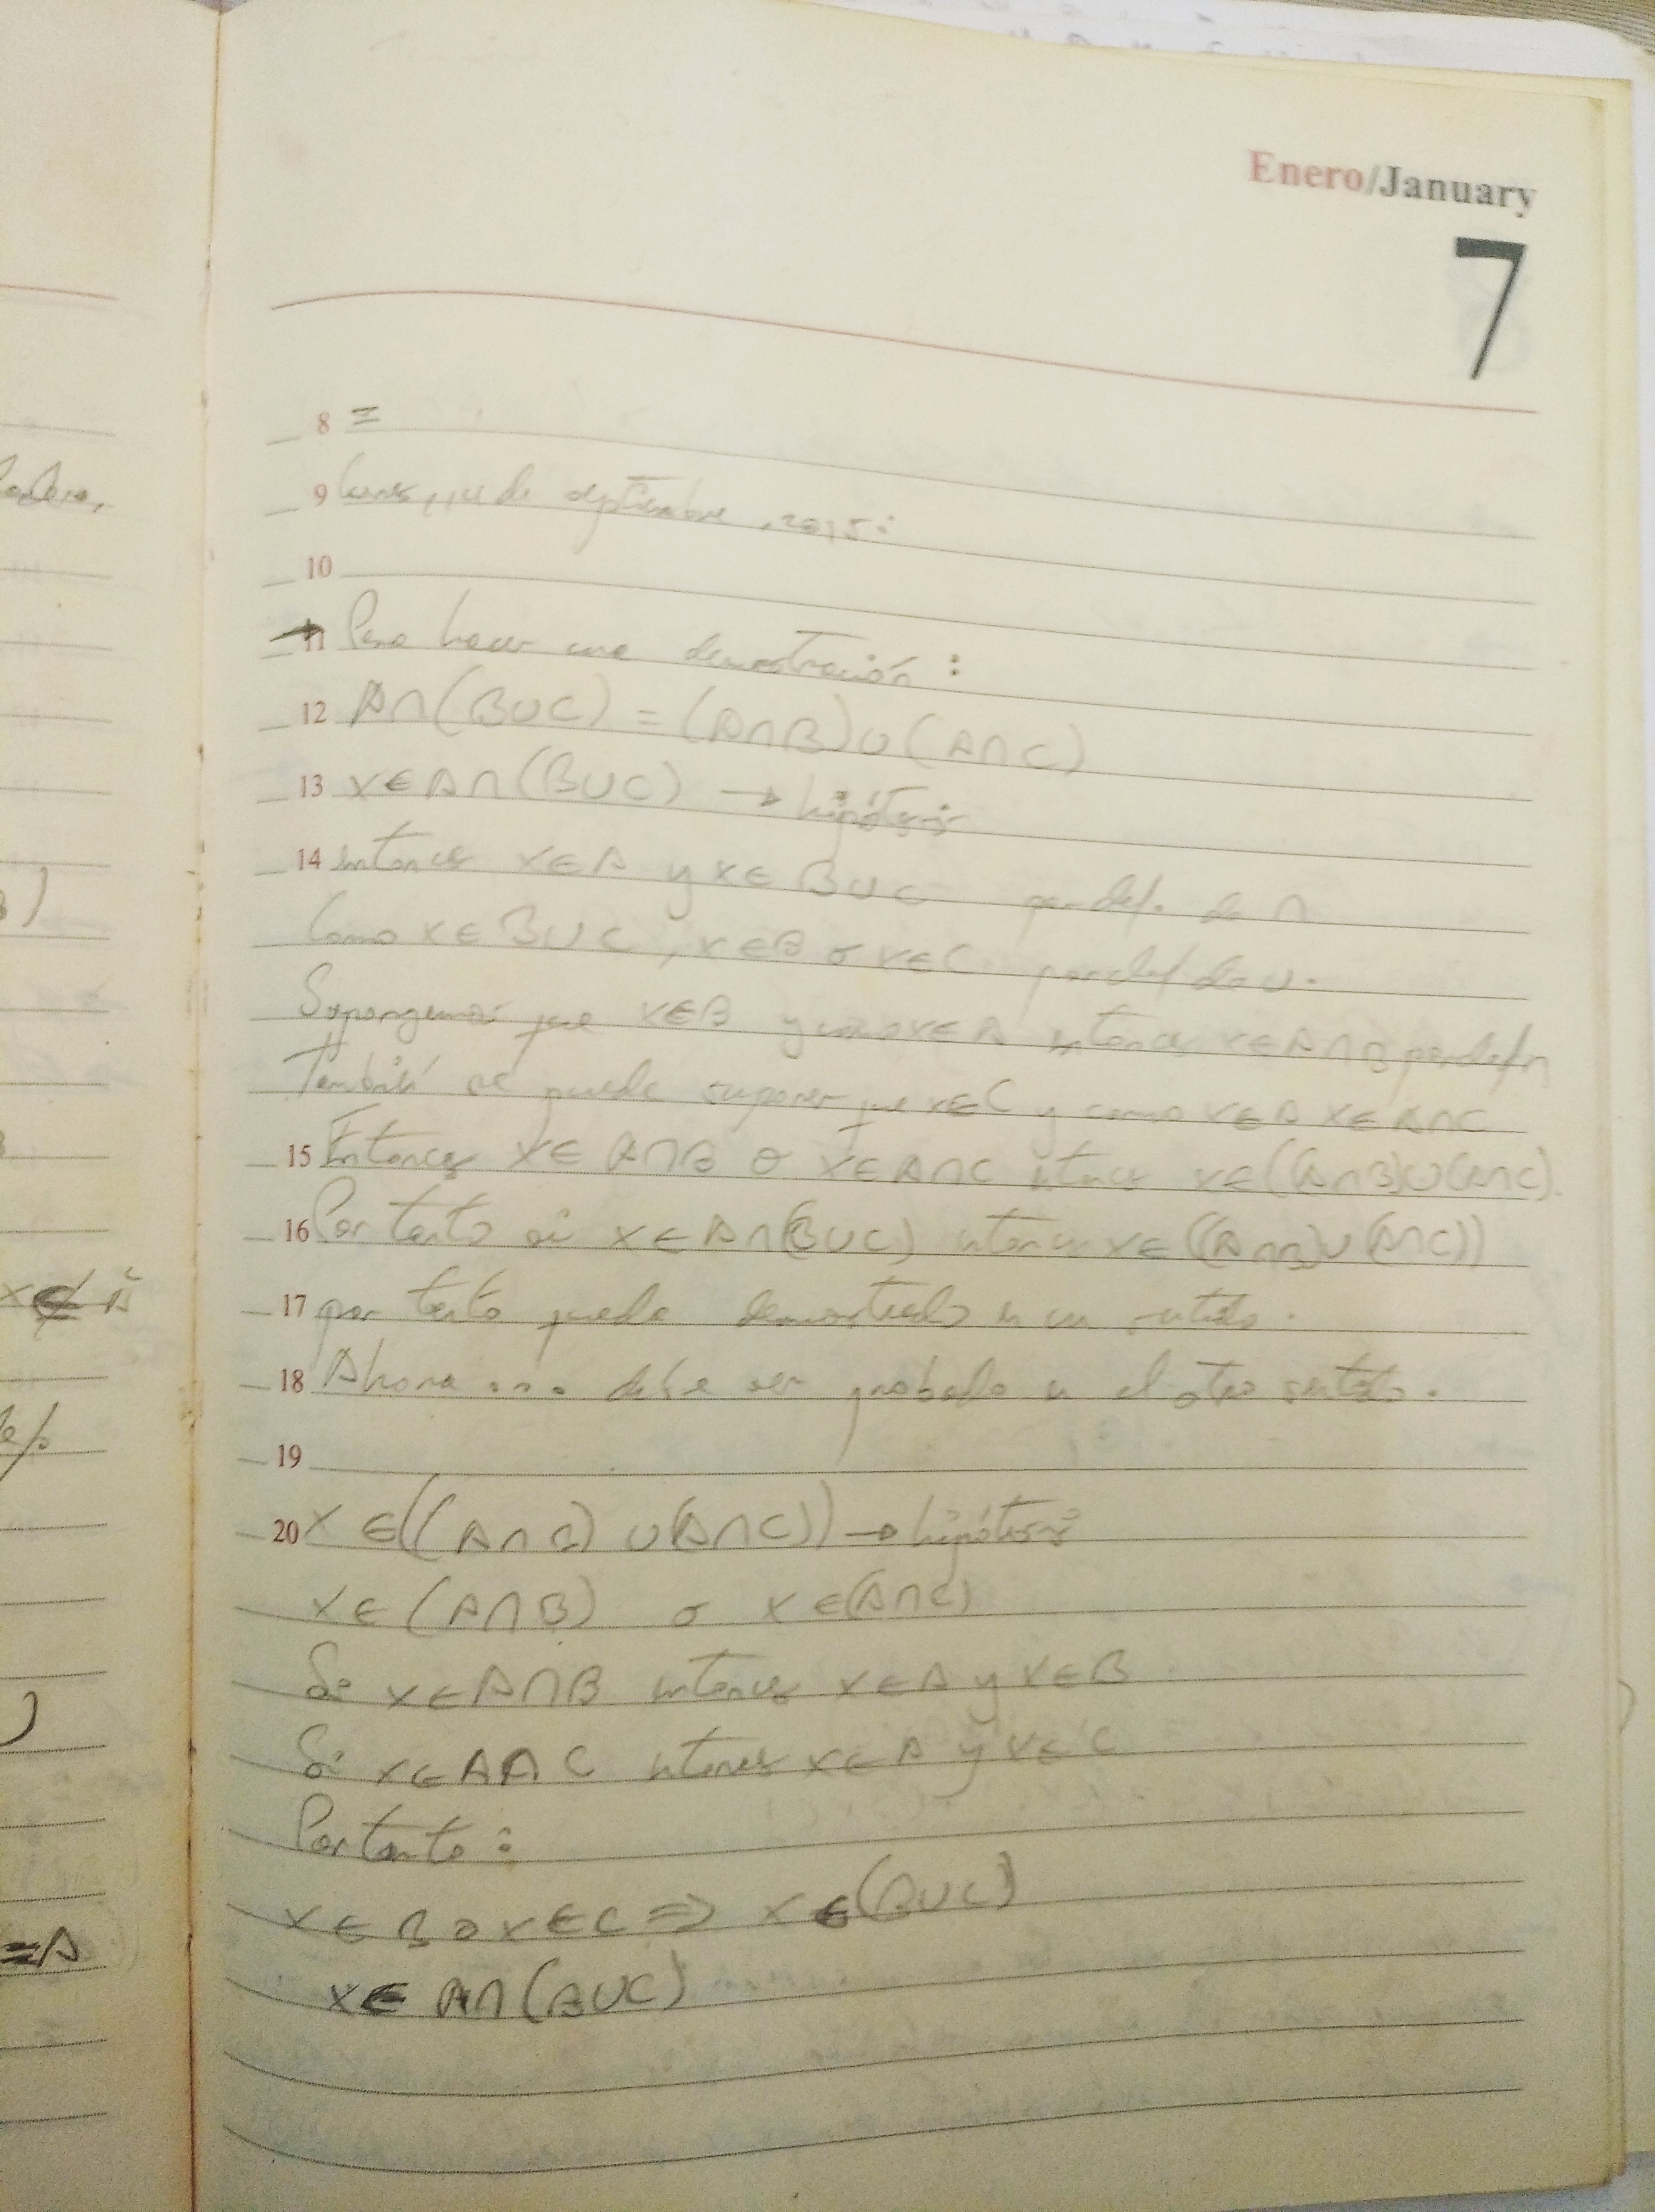 Enero/January
7
8 =
9 Lunes, 14 de septiembre, 2015:
10
→ 11 Para hacer una demostración:
12 A∩(B∪C) = (A∩B)∪(A∩C)
13 x∈A∩(B∪C) → hipótesis
14 entonces x∈A y x∈B∪C por def. de ∩
Como x∈B∪C, x∈B o x∈C por def de ∪.
Supongamos que x∈B y como x∈A entonces x∈A∩B por def ∩
También se puede suponer que x∈C y como x∈A x∈A∩C
15 Entonces x∈A∩B o x∈A∩C entonces x∈((A∩B)∪(A∩C).
16 Por tanto si x∈A∩(B∪C) entonces x∈((A∩B)∪(A∩C))
17 por tanto queda demostrado en un sentido.
18 Ahora ... debe ser probado en el otro sentido.
19
20 x∈((A∩B)∪(A∩C)) → hipótesis
x∈(A∩B) o x∈(A∩C)
Si x∈A∩B entonces x∈A y x∈B
Si x∈A∩C entonces x∈A y x∈C
Por tanto:
x∈B o x∈C ⇒ x∈(B∪C)
x∈A∩(B∪C)